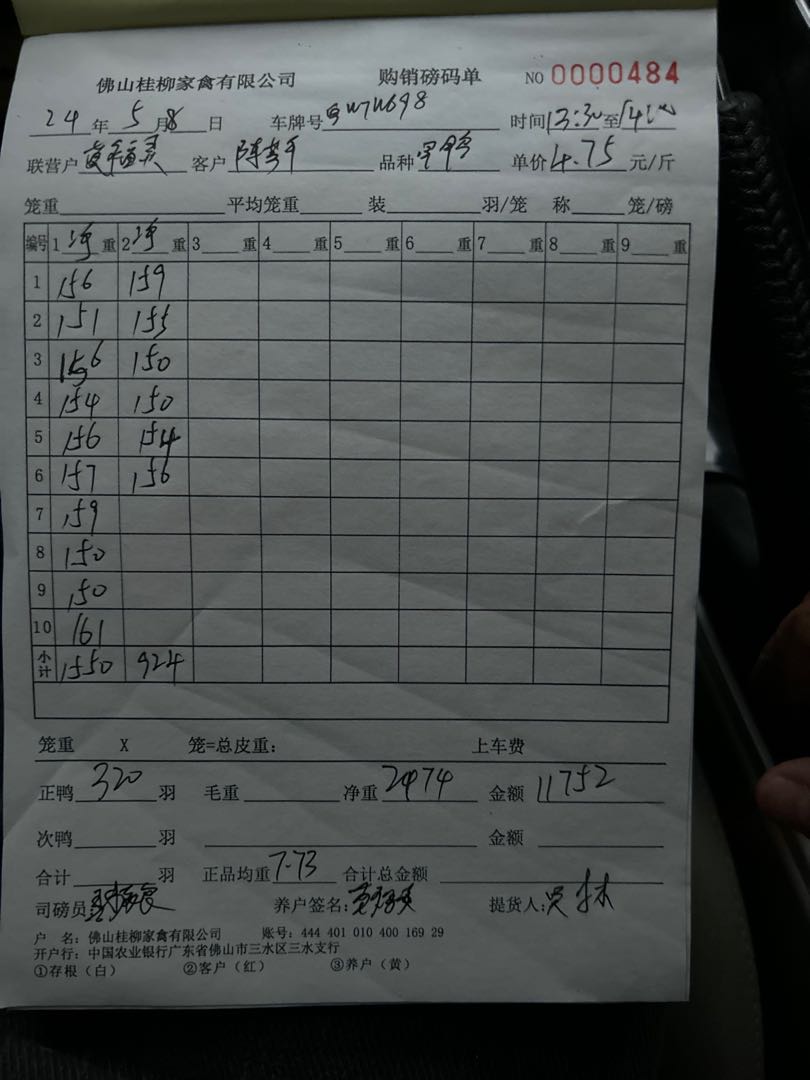 佛山桂柳家禽有限公司 购销磅码单 NO 0000484
24 年 5 月 8 日 车牌号 时间 13:30 至
联营户 客户 品种 单价 4.75 元/斤
笼重 平均笼重 装 羽/笼 称 笼/磅
编号 1 净 重 2 净 重 3 重 4 重 5 重 6 重 7 重 8 重 9 重
1 156 159
2 151 155
3 156 150
4 154 150
5 156 154
6 157 156
7 159
8 150
9 150
10 161
小计 1550 924
笼重 X 笼=总皮重: 上车费
正鸭 320 羽 毛重 净重 2474 金额 11752
次鸭 羽 金额
合计 羽 正品均重 7.73 合计总金额
司磅员 养户签名: 提货人:
户 名: 佛山桂柳家禽有限公司 账号: 444 401 010 400 169 29
开户行: 中国农业银行广东省佛山市三水区三水支行
①存根(白) ②客户(红) ③养户(黄)